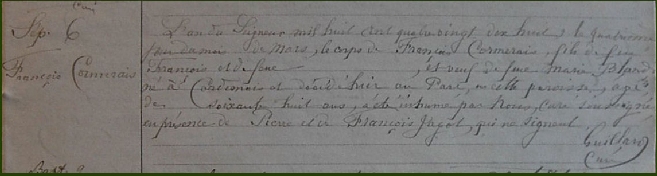 Curé
Sep. 6
François Cormerais
L'an du Seigneur mil huit cent quatre vingt dix huit, le quatrième
jour du mois de Mars, le corps de François Cormerais, fils de feu
François et de feue , et veuf de feue Marie
né à et décédé hier au Parc, en cette paroisse, agé
de soixante huit ans, a été inhumé par Nous, Curé soussigné
en présence de Pierre et de François Jagot, qui ne signent.
Guillard
Curé
Bapt.